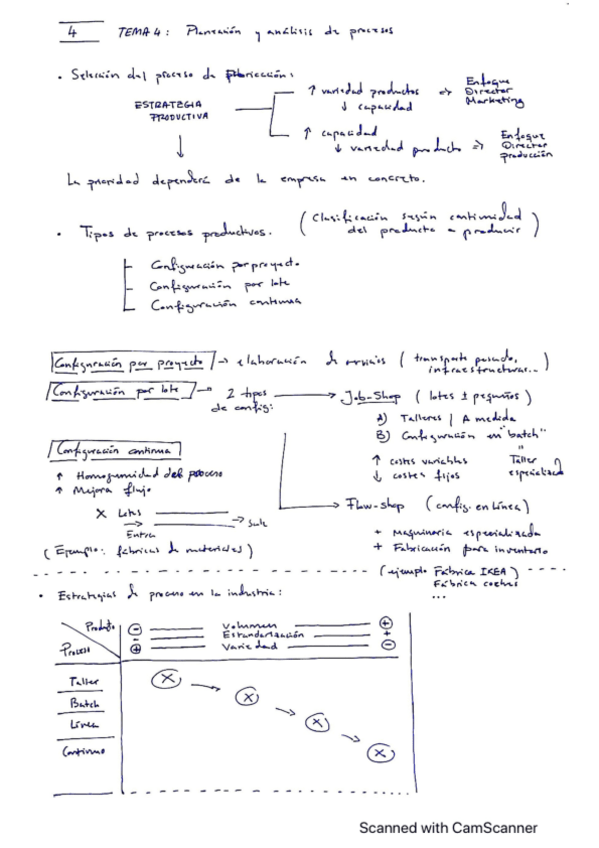 4 TEMA 4: Planeación y análisis de procesos
• Selección del proceso de fabricación:
ESTRATEGIA PRODUCTIVA
↑ variedad productos ⇒ Enfoque Director Marketing
↓ capacidad
↑ capacidad
↓ variedad producto ⇒ Enfoque Director producción
La prioridad dependerá de la empresa en concreto.
• Tipos de procesos productivos. (Clasificación según continuidad del producto a producir)
Configuración por proyecto
Configuración por lote
Configuración continua
Configuración por proyecto → elaboración de servicios (transporte pesado, infraestructuras...)
Configuración por lote → 2 tipos de config:
Job-Shop (lotes ± pequeños)
A) Talleres / A medida
B) Configuración en "batch"
↑ costes variables
↓ costes fijos
" Taller especializado
Configuración continua
↑ Homogeneidad del proceso
↑ Mejora flujo
X Lotes
Entra → Sale
(Ejemplo: fábricas de materiales)
Flow-shop (config. en línea)
+ Maquinaria especializada
+ Fabricación para inventario
(ejemplo Fábrica IKEA)
Fábrica coches
...
• Estrategias de proceso en la industria:
Producto
Proceso
- Volumen +
- Estandarización +
+ Variedad -
Taller
Batch
Línea
Continuo
Scanned with CamScanner